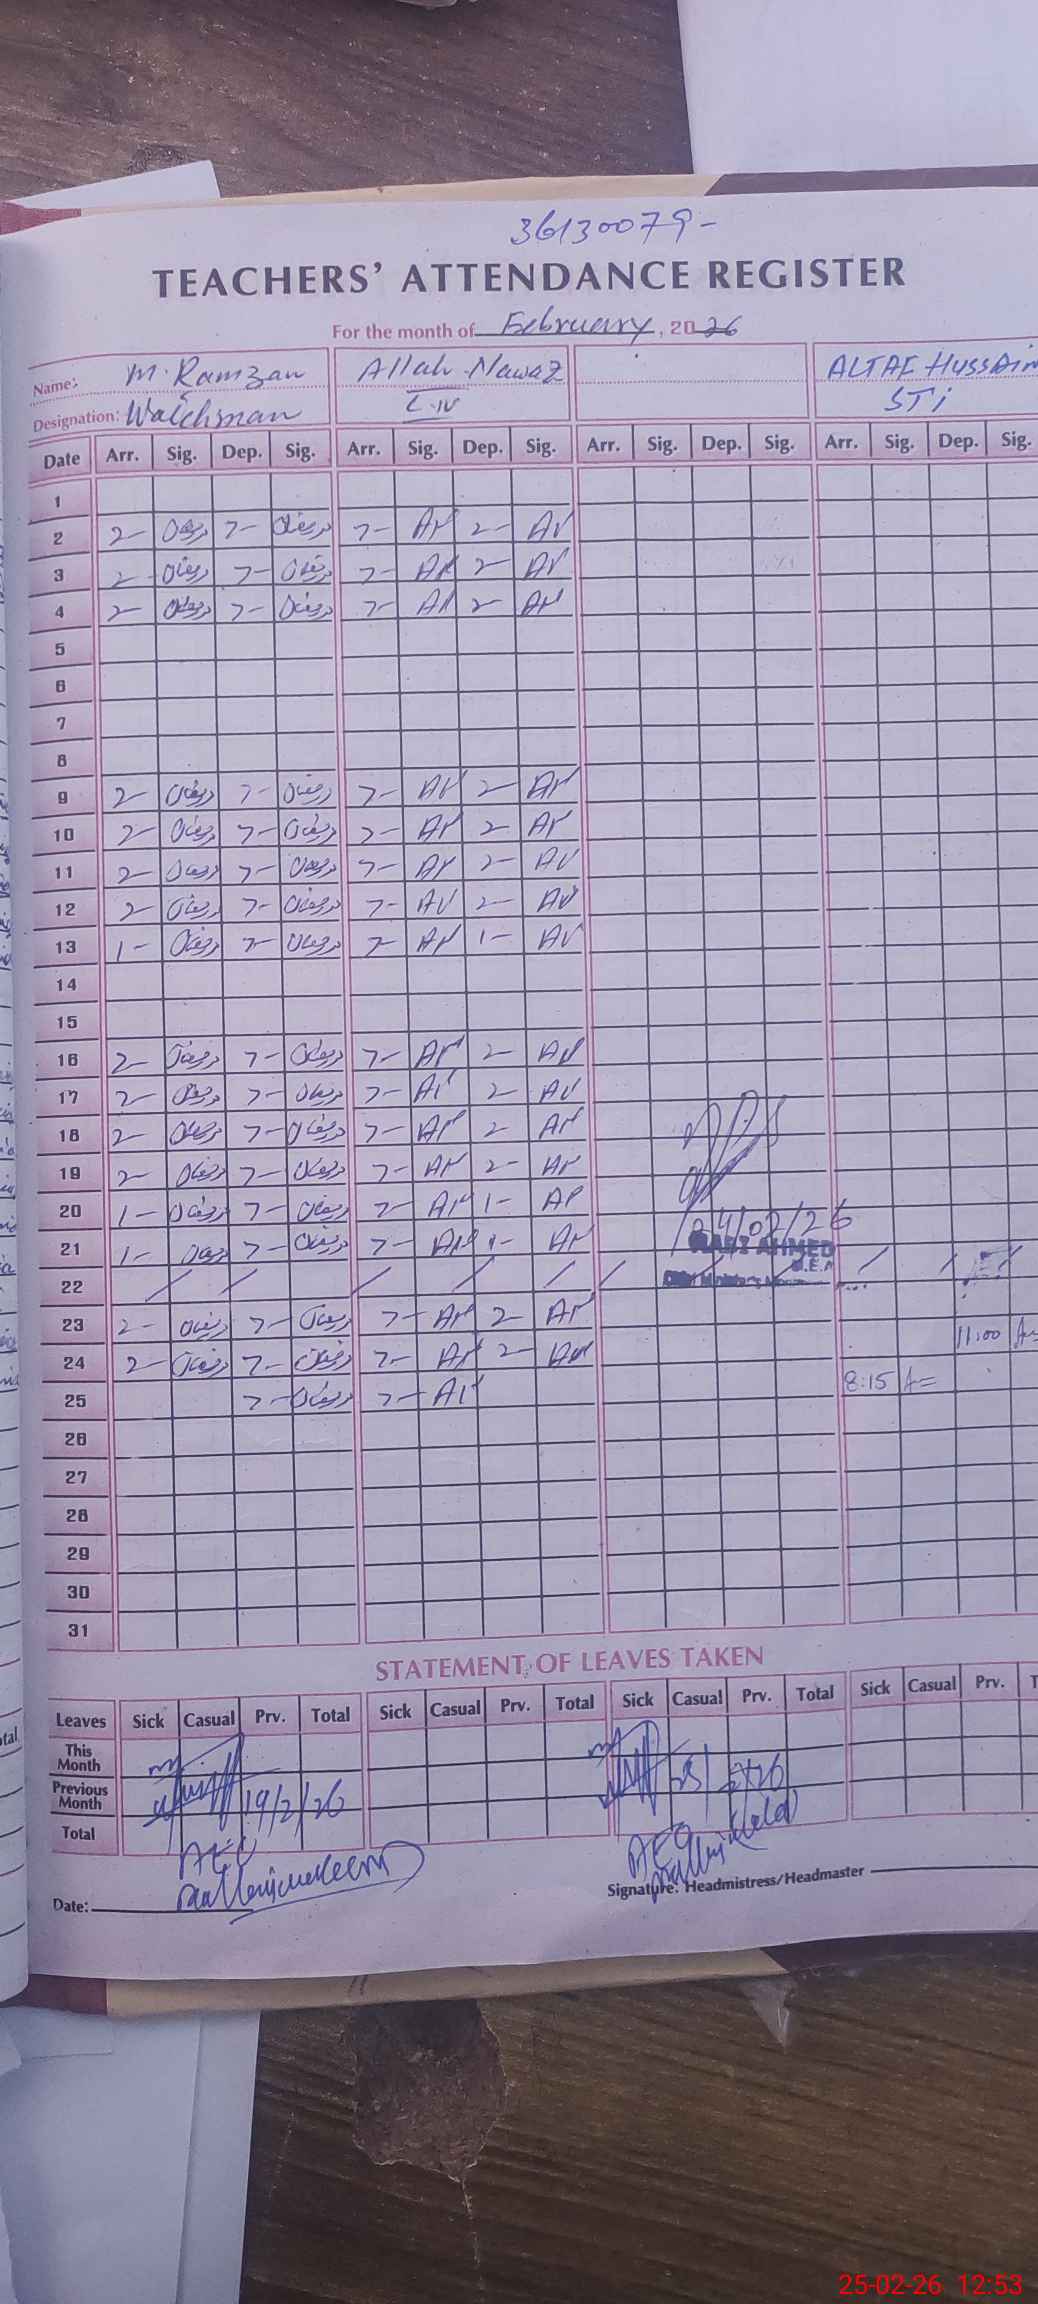 36130079-
TEACHERS' ATTENDANCE REGISTER
For the month of February, 2026
Name: M. Ramzan Allah Nawaz ALTAF HUSSAIN
Designation: Watchman C-IV STI
Date Arr. Sig. Dep. Sig. Arr. Sig. Dep. Sig. Arr. Sig. Dep. Sig. Arr. Sig. Dep. Sig.
1
2 2- رمضان 7- رمضان 7- AN 2- AN
3 2- رمضان 7- رمضان 7- AN 2- AN
4 2- رمضان 7- رمضان 7- AN 2- AN
5
6
7
8
9 2- رمضان 7- رمضان 7- AN 2- AN
10 2- رمضان 7- رمضان 7- AN 2- AN
11 2- رمضان 7- رمضان 7- AN 2- AN
12 2- رمضان 7- رمضان 7- AN 2- AN
13 1- رمضان 7- رمضان 7- AN 1- AN
14
15
16 2- رمضان 7- رمضان 7- AN 2- AN
17 2- رمضان 7- رمضان 7- AN 2- AN
18 2- رمضان 7- رمضان 7- AN 2 AN
19 2- رمضان 7- رمضان 7- AN 2- AN
20 1- رمضان 7- رمضان 7- AN 1- AN
24/02/26
21 1- رمضان 7- رمضان 7- AN 1- AN
AHMED
M.E.A
22 / / / / / / / /
23 2- رمضان 7- رمضان 7- AN 2 AN
24 2- رمضان 7- رمضان 7- AN 2- AN 11:00
25 7- رمضان 7- AN 8:15
26
27
28
29
30
31
STATEMENT OF LEAVES TAKEN
Leaves Sick Casual Prv. Total Sick Casual Prv. Total Sick Casual Prv. Total Sick Casual Prv.
This Month
Previous Month 19/2/26
Total
AEO AEO
Date: Signature: Headmistress/Headmaster
25-02-26 12:53